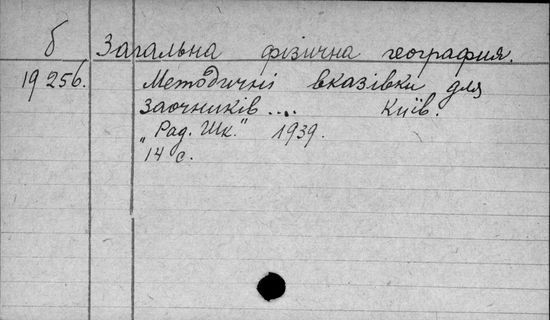 б Загальна фізична география.
19256. Методичні вказівки для
заочників .... Київ.
„Рад. Шк." 1939.
14 с.